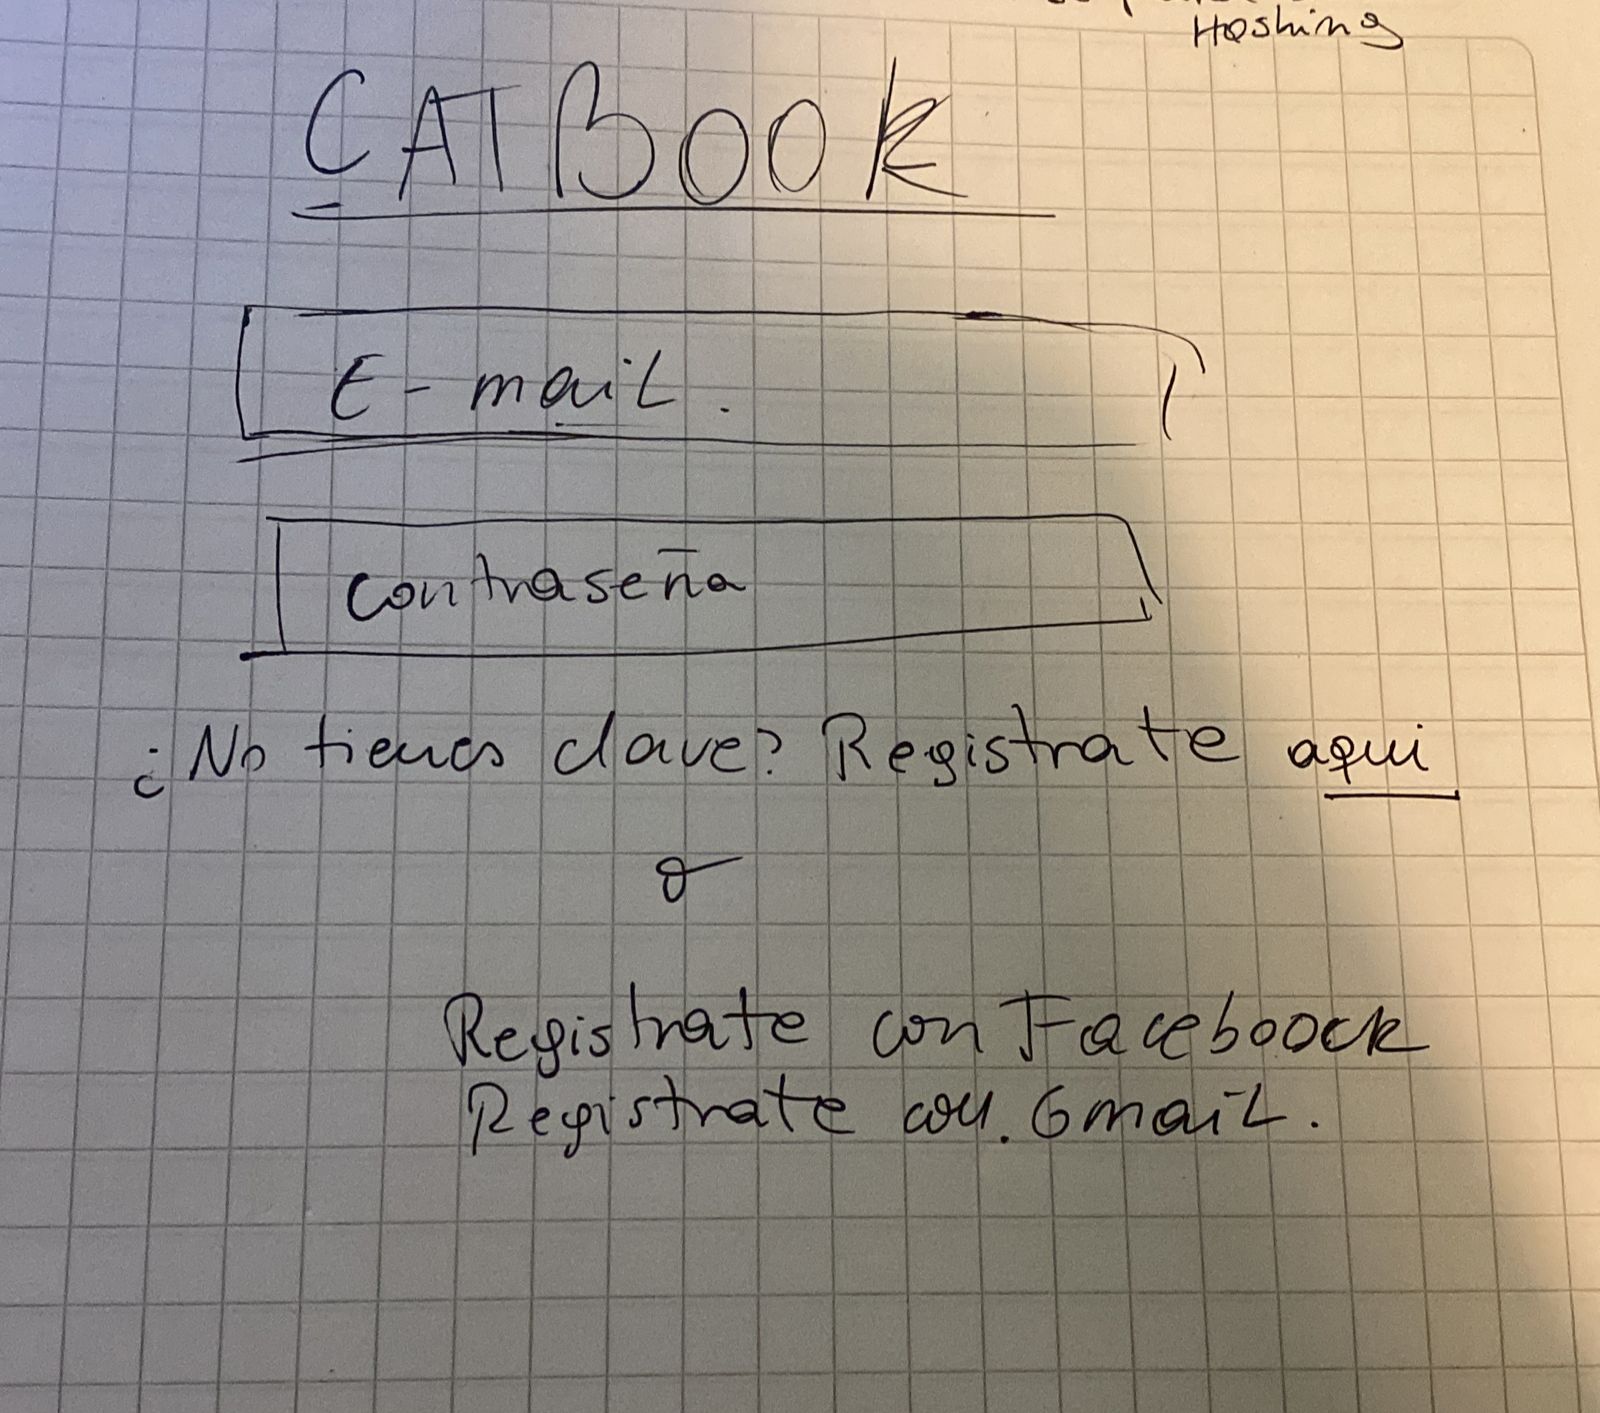 Hashing
CATBOOK
E-mail.
contraseña
¿No tienes clave? Registrate aqui
o
Registrate con Faceboock
Registrate con. Gmail.